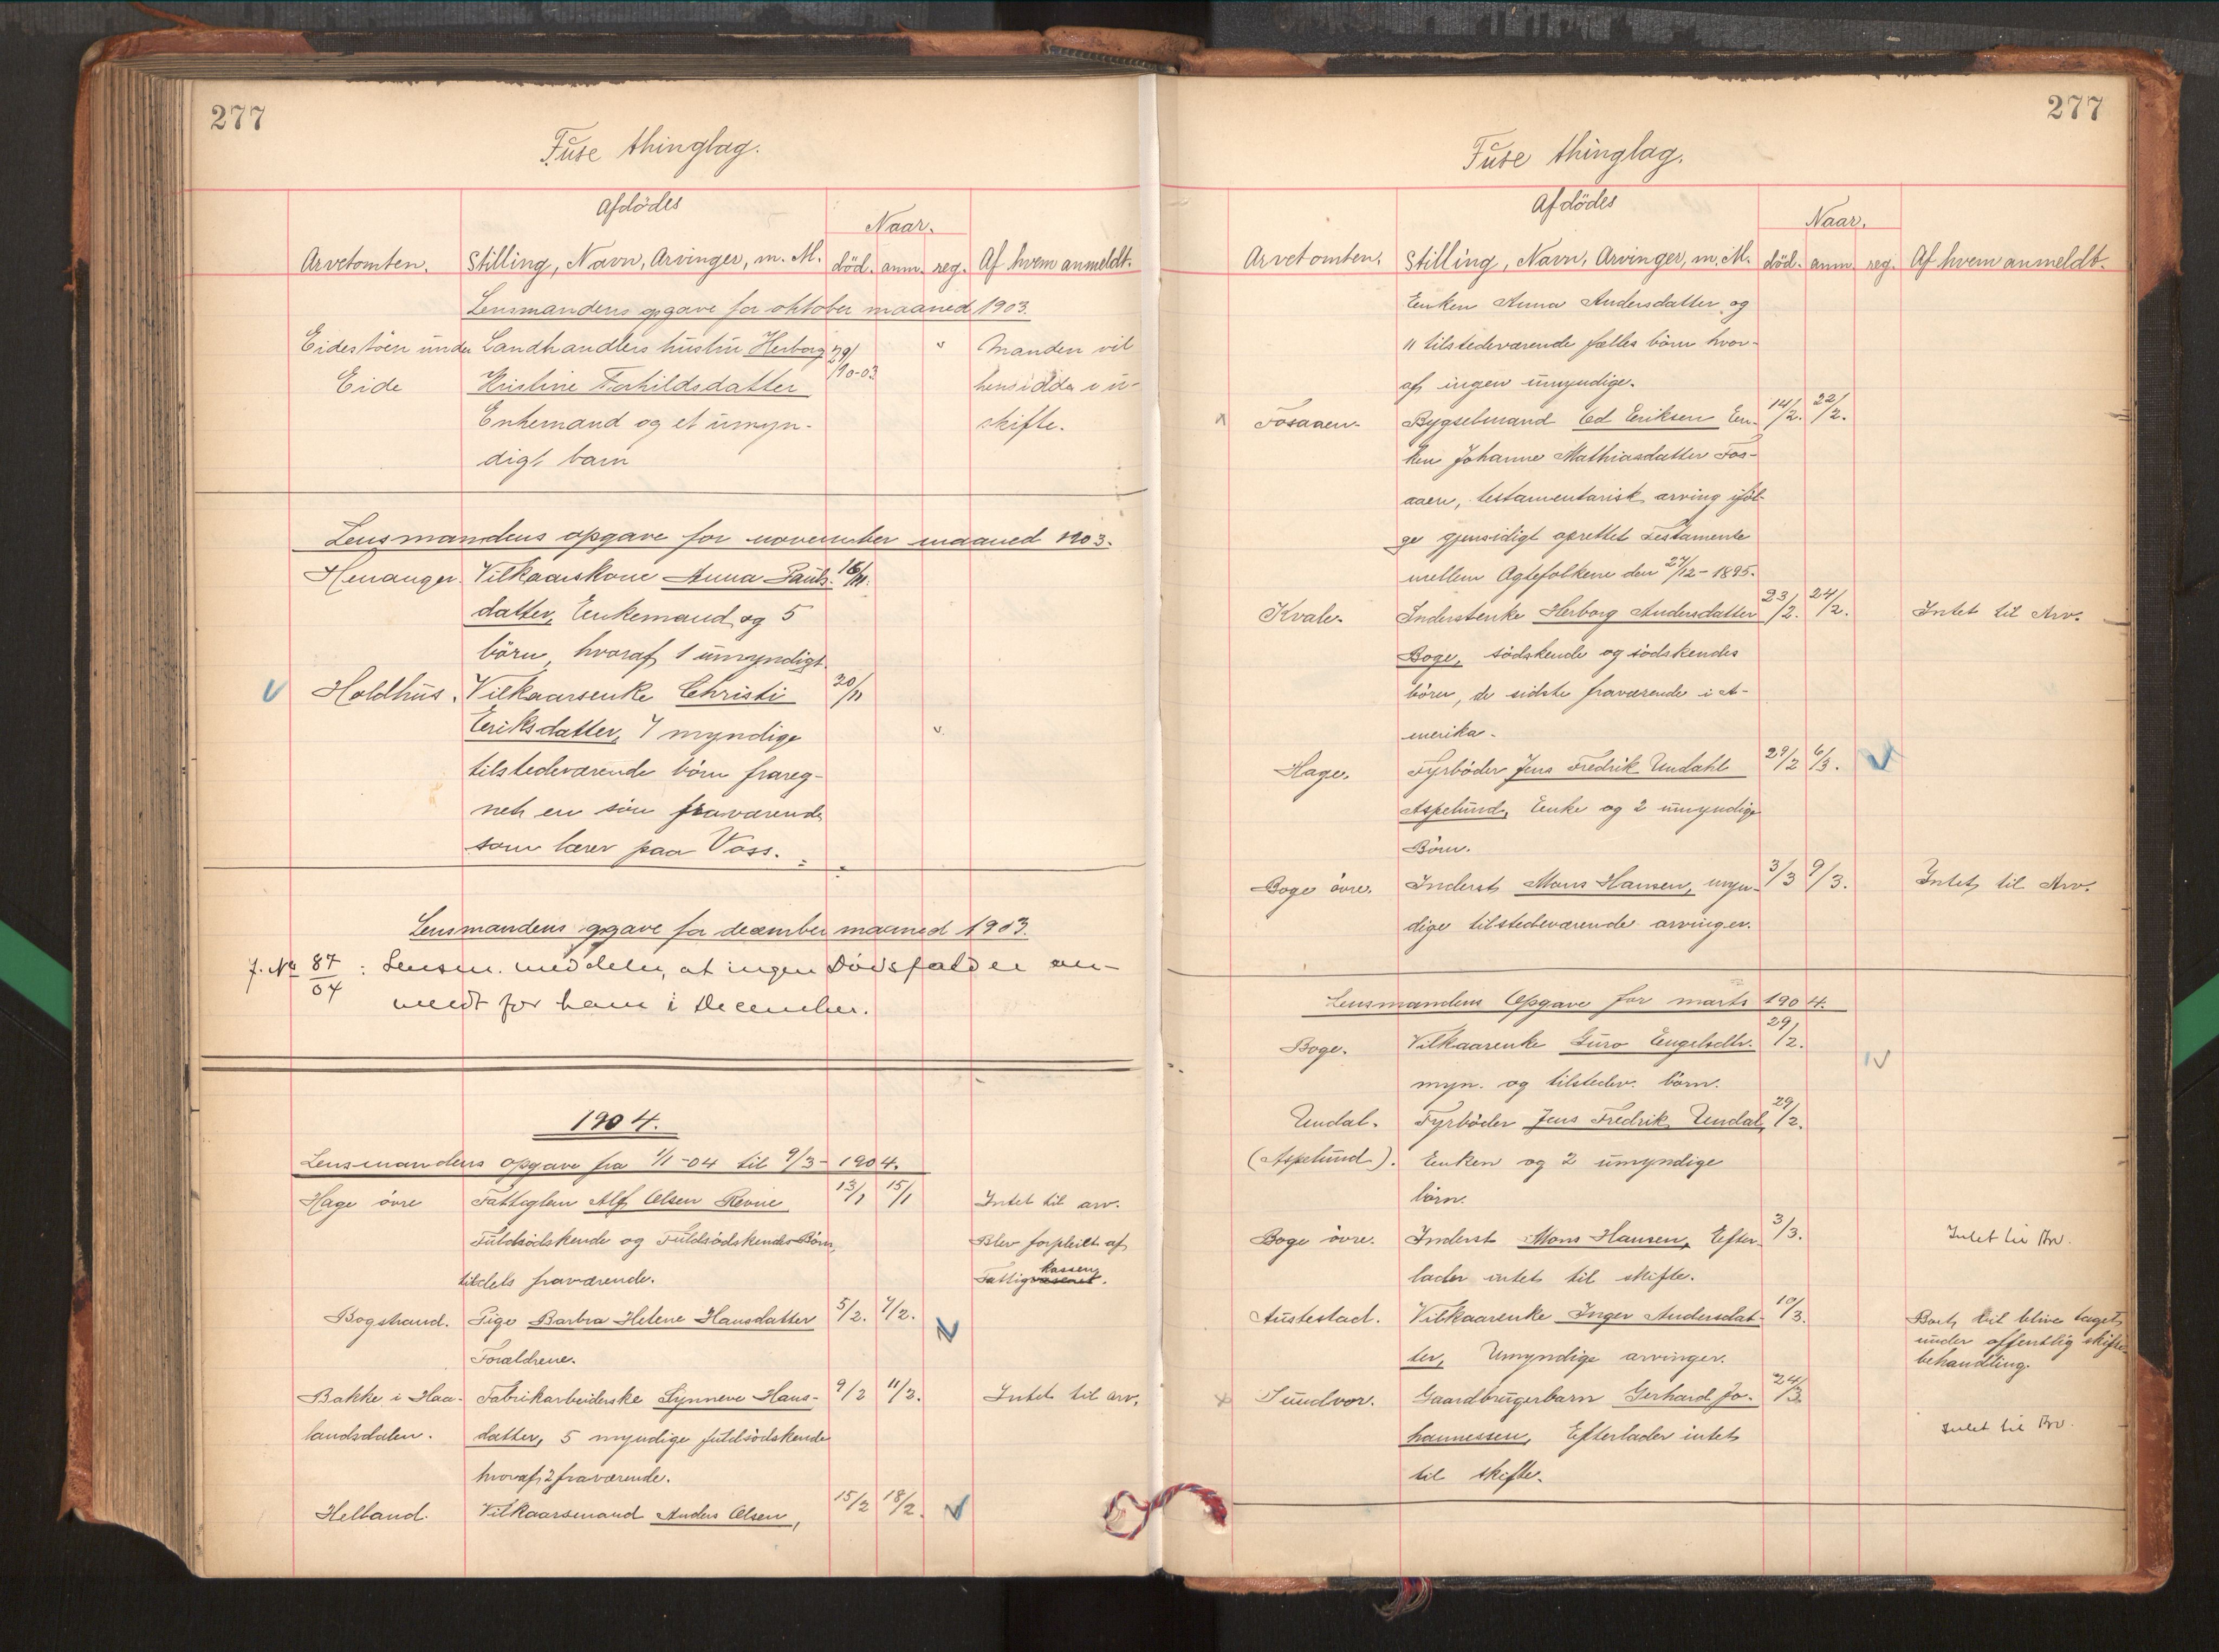 277
Fuse thinglag.
Afdödes
Naar.
Arvetomten. Stilling, Navn, Arvinger, m. M. död. anm. reg. Af hvem anmeldt.
Lensmandens opgave for oktober maaned 1903.
Eidestöen under Landhandlers hustru Herborg 29/10-03 " Manden vil
Eide Kristine Torkildsdatter hensidde i u-
Enkemand og et umyn- skifte.
digt barn
Lensmandens opgave for november maaned 1903.
Henanger. Vilkaarskone Anna Pauls- 16/11.
datter, Enkemand og 5
börn, hvoraf 1 umyndigt.
Holdhus. Vilkaarsenke Christi 20/11
Eeriksdatter, 7 myndige "
tilstedeværende börn frareg-
net en sön fraværende
som lærer paa Voss.
Lensmandens opgave for december maaned 1903.
J. No 87/04 : Lensm. meddeler, at ingen Dödsfald er an-
meldt for ham i December.
1904.
Lensmandens opgave fra 1/1-04 til 9/3-1904.
Hage övre Fattiglem Alf Olsen Revne 13/1 15/1 Intet til arv.
Fuldsödskende og Fuldsödskendes Börn, Blev forpleiet af
tildels fraværende. Fattigvæsenet kassen.
Bogstrand. Pige Barbra Helene Hansdatter 5/2. 7/2.
Forældrene.
Bakke i Haa- Fabrikarbeiderske Synneve Hans- 9/2 11/2. Intet til arv.
landsdalen. datter, 5 myndige fuldsödskende
hvoraf 2 fraværende.
Helland. Vilkaarsmand Anders Olsen, 15/2 18/2.
277
Fuse thinglag.
Afdödes
Naar.
Arvetomten. Stilling, Navn, Arvinger, m. M. död. anm. reg. Af hvem anmeldt.
Enken Anna Andersdatter og
11 tilstedeværende fælles börn hvor-
af ingen umyndige.
Fosaaen. Bygselmand Ed Eeriksen En- 14/2. 22/2.
ken Johanne Mathiasdatter Fos-
aaen, testamentarisk arving iföl-
ge gjensidigt oprettet Testamente
mellem Ægtefolkene den 27/12-1895.
Kvale. Inderstenke Herborg Andersdatter 23/2. 24/2. Intet til Arv.
Boge, södskende og södskendes
börn, de sidste fraværende i A-
merika.
Hage. Fyrböder Jens Fredrik Undahl 29/2 6/3.
Aspelund, Enke og 2 umyndige
Börn.
Boge övre. Inderst Mons Hansen, myn- 3/3 9/3. Intet til Arv.
dige tilstedeværende arvinger.
Lensmandens Opgave for marts 1904.
Boge. Vilkaarenke Guro Engelsdtr. 29/2.
myn. og tilstedev. börn.
Undal. Fyrböder Jens Fredrik Undal, 29/2.
(Aspelund). Enken og 2 umyndige
börn.
Boge övre. Inderst Mons Hansen, Efter- 3/3. Intet til Arv.
lader intet til skifte.
Austestad. Vilkaarenke Inger Andersdat- 10/3. Boet vil blive taget
ter, Umyndige arvinger. under offentlig skifte-
behandling.
Sundvor. Gaardbrugerbarn Gerhard Jo- 24/3.
hannessen, Efterlader intet Intet til Arv.
til skifte.